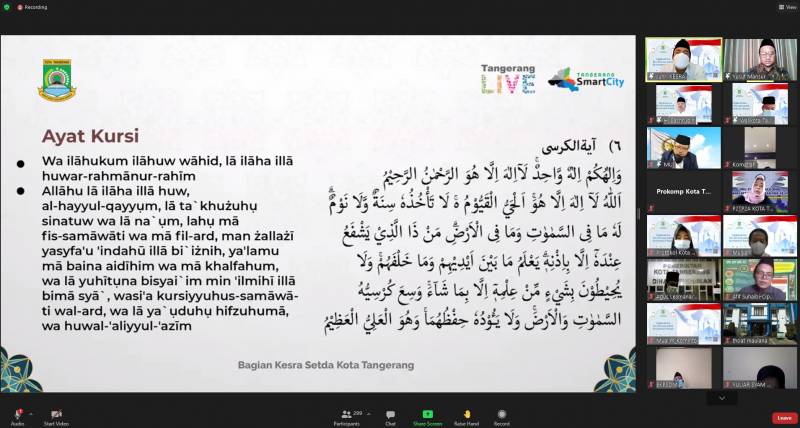 Recording
View
Tangerang
LIVE
TANGERANG
SmartCity
Ayat Kursi
٦) آيةالكرسى
Wa ilāhukum ilāhuw wāhid, lā ilāha illā
huwar-rahmānur-rahīm
Allāhu lā ilāha illā huw,
al-hayyul-qayyụm, lā ta`khużuhụ
sinatuw wa lā na`ụm, lahụ mā
fis-samāwāti wa mā fil-ard, man żallażī
yasyfa'u 'indahũ illā bi`iżnih, ya'lamu
mā baina aidīhim wa mā khalfahum,
wa lā yuhīṭụna bisyai`im min 'ilmihī illā
bimā syā`, wasi'a kursiyyuhus-samāwā-
ti wal-ard, wa lā ya`ụduhụ hifzuhumā,
wa huwal-'aliyyul-'azīm
وَاِلٰهُكُمْ اِلٰهٌ وَّاحِدٌۚ لَآاِلٰهَ اِلَّا هُوَ الرَّحْمٰنُ الرَّحِيْمُ
اَللّٰهُ لَآ اِلٰهَ اِلَّا هُوَۚ اَلْحَيُّ الْقَيُّوْمُ ەۚ لَا تَأْخُذُهٗ سِنَةٌ وَّلَا نَوْمٌۗ
لَهٗ مَا فِى السَّمٰوٰتِ وَمَا فِى الْاَرْضِۗ مَنْ ذَا الَّذِيْ يَشْفَعُ
عِنْدَهٗٓ اِلَّا بِاِذْنِهٖۗ يَعْلَمُ مَا بَيْنَ اَيْدِيْهِمْ وَمَا خَلْفَهُمْۚ وَلَا
يُحِيْطُوْنَ بِشَيْءٍ مِّنْ عِلْمِهٖٓ اِلَّا بِمَا شَاۤءَۚ وَسِعَ كُرْسِيُّهُ
السَّمٰوٰتِ وَالْاَرْضَۚ وَلَا يَـُٔوْدُهٗ حِفْظُهُمَاۚ وَهُوَ الْعَلِيُّ الْعَظِيْمُ
Bagian Kesra Setda Kota Tangerang
Yusuf Mansur
Prokomp Kota T...
P2TP2A KOTA T...
thoat maulana
YULIAR SYAM
Audio
Start Video
299
Participants
Chat
Share Screen
Raise Hand
Record
Leave